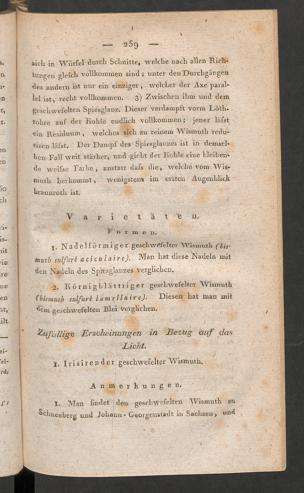 — 239 —
sich in Würfel durch Schnitte, welche nach allen Rich-
tungen gleich vollkommen sind; unter den Durchgängen
des andern ist nur ein einziger, welcher der Axe paral-
lel ist, recht vollkommen. 3) Zwischen ihm und dem
geschwefelten Spiesglanz. Dieser verdampft vorm Löth-
rohre auf der Kohle endlich vollkommen; jener läst
ein Residuum, welches sich zu reinem Wismuth redu-
ziren läst. Der Dampf des Spiesglanzes ist in demsel-
ben Fall weit stärker, und giebt der Kohle eine bleiben-
de weisse Farbe, anstatt dass die, welche vom Wis-
muth herkommt, wenigstens im ersten Augenblick
braunroth ist.
Varietäten.
Formen.
1. Nadelförmiger geschwefelter Wismuth (bis-
muth sulfuré aciculaire). Man hat diese Nadeln mit
den Nadeln des Spiesglanzes verglichen.
2. Körnigblättriger geschwefelter Wismuth
(bismuth sulfuré lamellaire). Diesen hat man mit
dem geschwefelten Blei verglichen.
Zufällige Erscheinungen in Bezug auf das
Licht.
1. Irisirender geschwefelter Wismuth.
Anmerkungen.
1. Man findet den geschwefelten Wismuth zu
Schneeberg und Johann-Georgenstadt in Sachsen, und